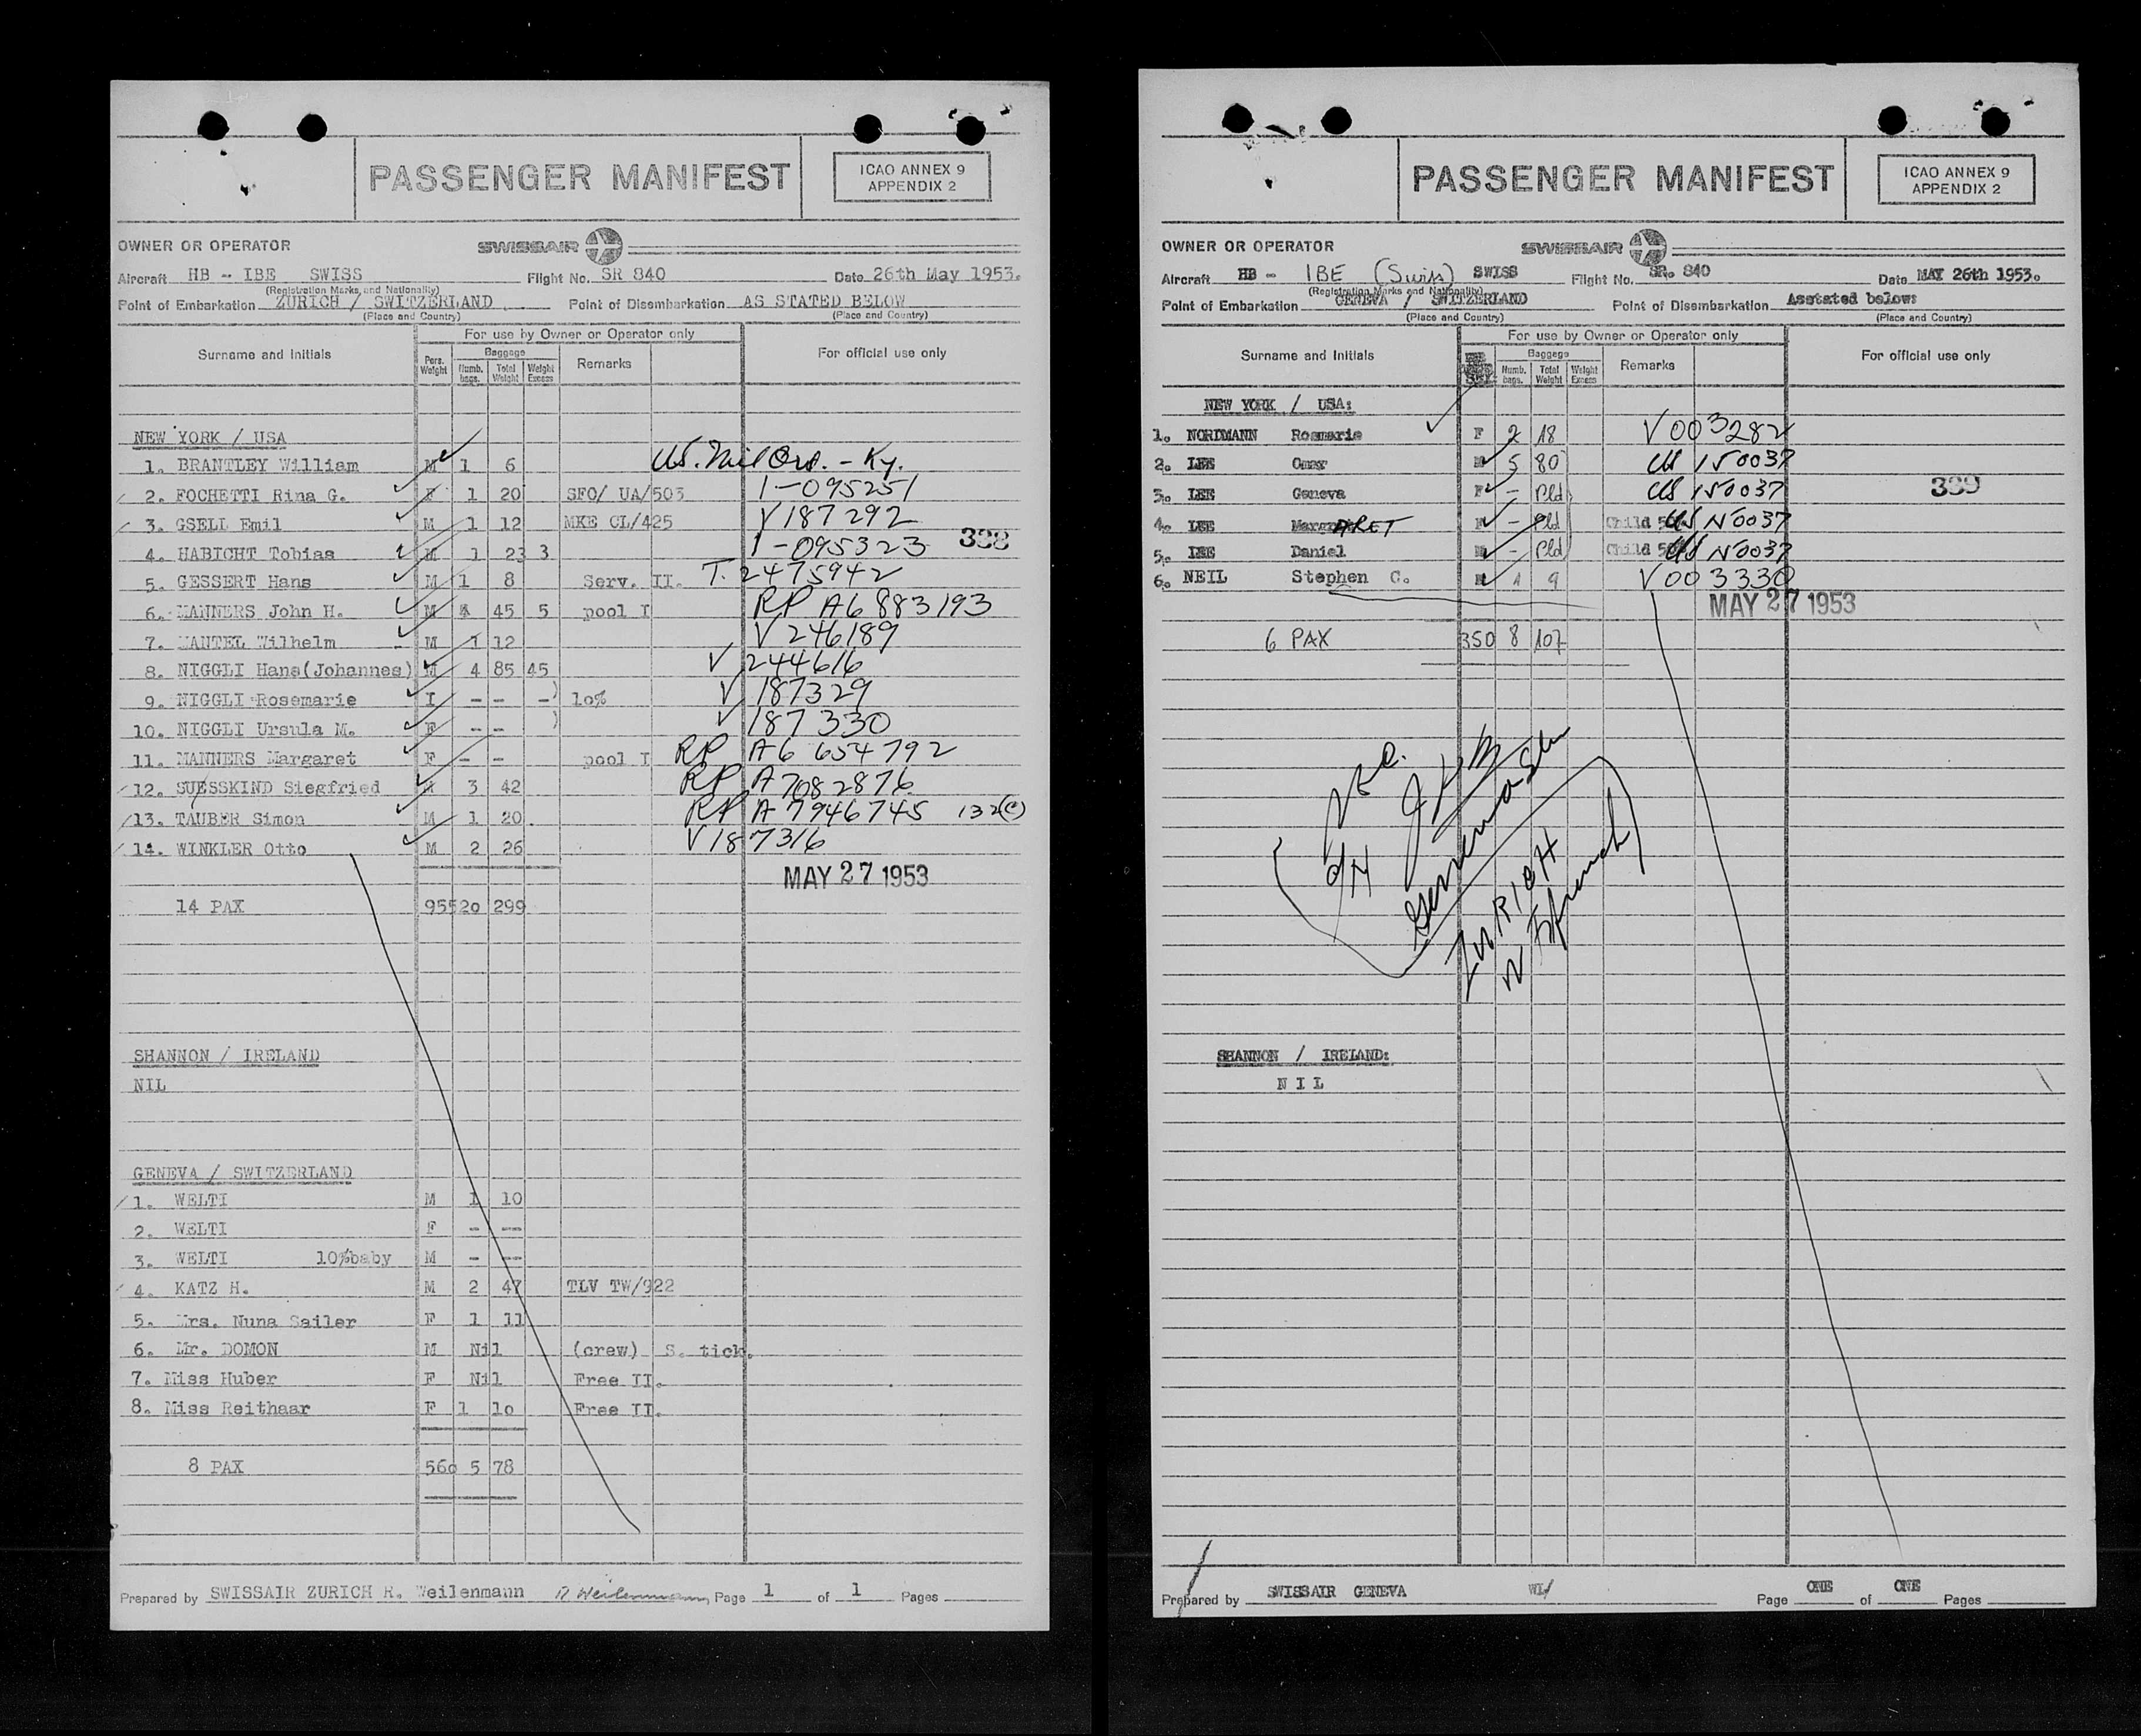 PASSENGER MANIFEST
ICAO ANNEX 9
APPENDIX 2
OWNER OR OPERATOR SWISSAIR
Aircraft HB - IBE SWISS Flight No. SR 840 Date 26th May 1953.
(Registration Marks and Nationality)
Point of Embarkation ZURICH / SWITZERLAND Point of Disembarkation AS STATED BELOW
(Place and Country) (Place and Country)
For use by Owner or Operator only
Surname and Initials Pers. Weight Baggage Numb. bags. Total Weight Weight Excess Remarks For official use only
NEW YORK / USA
1. BRANTLEY William M 1 6 US. Mil Ord. - Ky.
2. FOCHETTI Rina G. F 1 20 SFO/ UA/503 1-095251
3. GSELL Emil M 1 12 MKE CL/425 V187292
4. HABICHT Tobias M 1 23 3 1-095323 338
5. GESSERT Hans M 1 8 Serv. II. T. 2475942
6. MANNERS John H. M 4 45 5 pool I RP A6 883193
7. MANTEL Wilhelm M 1 12 V 246189
8. NIGGLI Hans(Johannes) M 4 85 45 V 244616
9. NIGGLI Rosemarie I - - -) 10% V 187329
10. NIGGLI Ursula M. F - - ) V 187330
11. MANNERS Margaret F - - pool I RP A6 654792
12. SUESSKIND Siegfried M 3 42 RP A7082876
13. TAUBER Simon M 1 20 RP A7946745 132(C)
14. WINKLER Otto M 2 26 V187316
MAY 27 1953
14 PAX 955 20 299
SHANNON / IRELAND
NIL
GENEVA / SWITZERLAND
1. WELTI M 1 10
2. WELTI F - --
3. WELTI 10%baby M - --
4. KATZ H. M 2 47 TLV TW/922
5. Mrs. Nuna Sailer F 1 11
6. Mr. DOMON M Nil (crew) S. tick.
7. Miss Huber F Nil Free II.
8. Miss Reithaar F 1 10 Free II.
8 PAX 560 5 78
Prepared by SWISSAIR ZURICH R. Weilenmann R Weilenmann Page 1 of 1 Pages
PASSENGER MANIFEST
ICAO ANNEX 9
APPENDIX 2
OWNER OR OPERATOR SWISSAIR
Aircraft HB - IBE (Swiss) SWISS Flight No. SR. 840 Date MAY 26th 1953.
(Registration Marks and Nationality)
Point of Embarkation GENEVA / SWITZERLAND Point of Disembarkation Asstated below:
(Place and Country) (Place and Country)
For use by Owner or Operator only
Surname and Initials Baggage Numb. bags. Total Weight Weight Excess Remarks For official use only
NEW YORK / USA:
1. NORDMANN Rosmarie F 2 18 V003282
2. LEE Omar M 5 80 US 150037
3. LEE Geneva F - Pld US 150037 339
4. LEE MargARET - Pld Child US N0037
5. LEE Daniel M - Pld Child US N0037
6. NEIL Stephen C. M 1 9 V003330
MAY 27 1953
6 PAX 350 8 107
ZURICH
SHANNON / IRELAND:
N I L
Prepared by SWISSAIR GENEVA WL/ Page ONE of ONE Pages